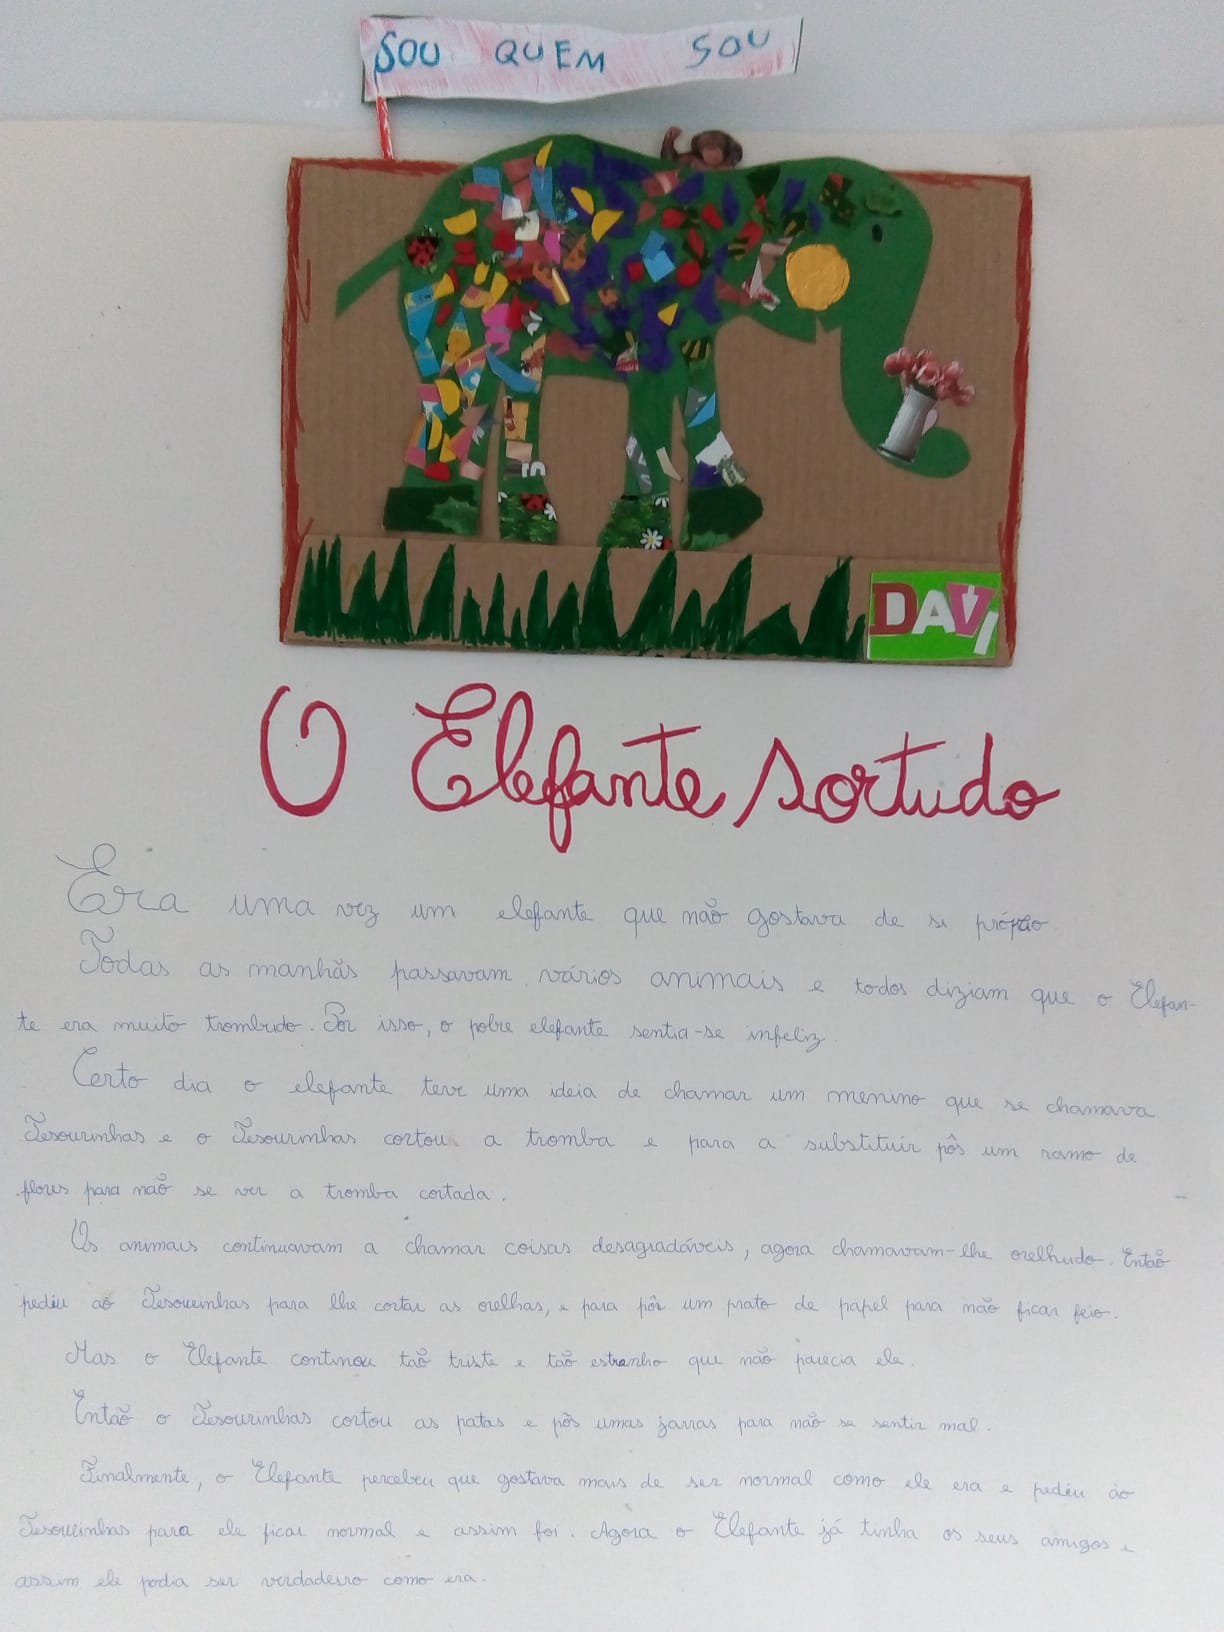 SOU QUEM SOU
DAVI
O Elefante sortudo
Era uma vez um elefante que não gostava de si própio
Todas as manhãs passavam vários animais e todos diziam que o Elefan-
te era muito trombudo. Por isso, o pobre elefante sentia-se infeliz.
Certo dia o elefante teve uma ideia de chamar um menino que se chamava
Tesourinhas e o Tesourinhas cortou a tromba e para a substituir pôs um ramo de
flores para não se ver a tromba cortada.
Os animais continuavam a chamar coisas desagradáveis, agora chamavam-lhe orelhudo. Então
pediu ao Tesourinhas para lhe cortar as orelhas, e para pôr um prato de papel para não ficar feio.
Mas o Elefante continou tão triste e tão estranho que não parecia ele.
Então o Tesourinhas cortou as patas e pôs umas jarras para não se sentir mal.
Finalmente, o Elefante percebeu que gostava mais de ser normal como ele era e pediu ao
Tesourinhas para ele ficar normal e assim foi. Agora o Elefante já tinha os seus amigos e
assim ele podia ser verdadeiro como era.